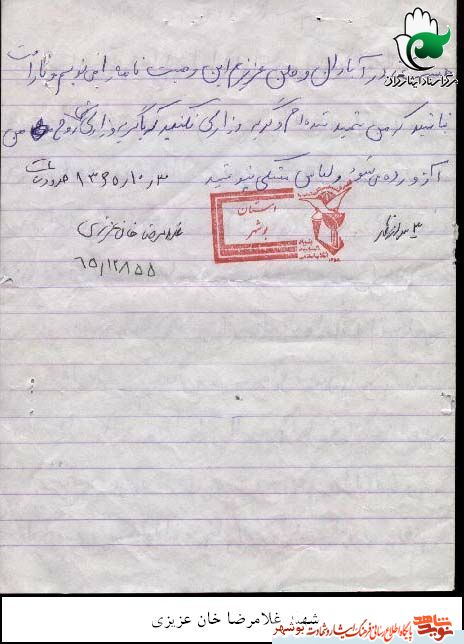 مرکز اسناد ایثارگران
در آبادان و من عزیزم این وصیت نامه را می نویسم و ناراحت
نباشید که من شهید شده ام و گریه و زاری نکنید که با گریه و زاری شما روح من
آزرده می شود و لباس مشکی نپوشید
۱۳۶۵/۱۰/۳
استان
بوشهر
بنیاد شهید انقلاب اسلامی
غلامرضا خان عزیزی
۶۵/۱۲۸۵۵
شهید غلامرضا خان عزیزی
نوید شاهد
پایگاه اطلاع رسانی فرهنگ ایثار و شهادت بوشهر